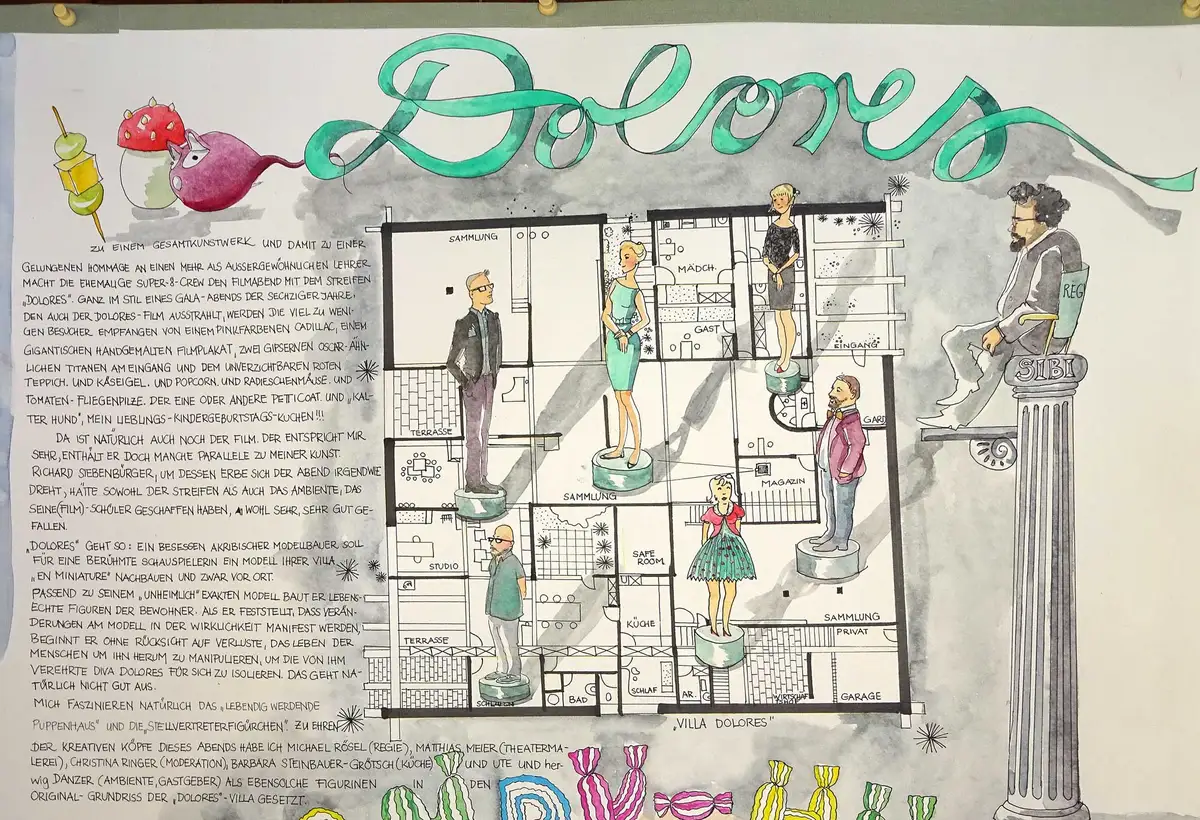 Dolores
ZU EINEM GESAMTKUNSTWERK UND DAMIT ZU EINER
GELUNGENEN HOMMAGE AN EINEN MEHR ALS AUSSERGEWÖHNLICHEN LEHRER
MACHT DIE EHEMALIGE SUPER-8-CREW DEN FILMABEND MIT DEM STREIFEN
„DOLORES". GANZ IM STIL EINES GALA-ABENDS DER SECHZIGER JAHRE,
DEN AUCH DER DOLORES-FILM AUSSTRAHLT, WERDEN DIE VIEL ZU WENI-
GEN BESUCHER EMPFANGEN VON EINEM PINKFARBENEN CADILLAC, EINEM
GIGANTISCHEN HANDGEMALTEN FILMPLAKAT, ZWEI GIPSERNEN OSCAR-ÄHN-
LICHEN TITANEN AM EINGANG UND DEM UNVERZICHTBAREN ROTEN
TEPPICH. UND KÄSEIGEL. UND POPCORN. UND RADIESCHENMÄUSE. UND
TOMATEN-FLIEGENPILZE. DER EINE ODER ANDERE PETTICOAT. UND „KAL-
TER HUND", MEIN LIEBLINGS-KINDERGEBURTSTAGS-KUCHEN!!!
DA IST NATÜRLICH AUCH NOCH DER FILM. DER ENTSPRICHT MIR
SEHR, ENTHÄLT ER DOCH MANCHE PARALLELE ZU MEINER KUNST.
RICHARD SIEBENBÜRGER, UM DESSEN ERBE SICH DER ABEND IRGENDWIE
DREHT, HÄTTE SOWOHL DER STREIFEN ALS AUCH DAS AMBIENTE, DAS
SEINE (FILM)-SCHÜLER GESCHAFFEN HABEN, WOHL SEHR, SEHR GUT GE-
FALLEN.
„DOLORES" GEHT SO: EIN BESESSEN AKRIBISCHER MODELLBAUER SOLL
FÜR EINE BERÜHMTE SCHAUSPIELERIN EIN MODELL IHRER VILLA
„EN MINIATURE" NACHBAUEN UND ZWAR VOR ORT.
PASSEND ZU SEINEM „UNHEIMLICH" EXAKTEN MODELL BAUT ER LEBENS-
ECHTE FIGUREN DER BEWOHNER. ALS ER FESTSTELLT, DASS VERÄN-
DERUNGEN AM MODELL IN DER WIRKLICHKEIT MANIFEST WERDEN,
BEGINNT ER OHNE RÜCKSICHT AUF VERLUSTE, DAS LEBEN DER
MENSCHEN UM IHN HERUM ZU MANIPULIEREN, UM DIE VON IHM
VEREHRTE DIVA DOLORES FÜR SICH ZU ISOLIEREN. DAS GEHT NA-
TÜRLICH NICHT GUT AUS.
MICH FASZINIEREN NATÜRLICH DAS „LEBENDIG WERDENDE
PUPPENHAUS" UND DIE „STELLVERTRETERFIGÜRCHEN". ZU EHREN
DER KREATIVEN KÖPFE DIESES ABENDS HABE ICH MICHAEL RÖSEL (REGIE), MATTHIAS MEIER (THEATERMA-
LEREI), CHRISTINA RINGER (MODERATION), BARBARA STEINBAUER-GRÖTSCH (KÜCHE) UND UTE und her-
wig DANZER (AMBIENTE, GASTGEBER) ALS EBENSOLCHE FIGURINEN IN DEN
ORIGINAL-GRUNDRISS DER „DOLORES"-VILLA GESETZT.
SAMMLUNG
MÄDCH.
GAST
EINGANG
TERRASSE
GARD
SAMMLUNG
MAGAZIN
STUDIO
SAFE
ROOM
KÜCHE
SAMMLUNG
PRIVAT
TERRASSE
SCHLAF
AR.
BAD
GARAGE
„VILLA DOLORES"
REG
SIBI